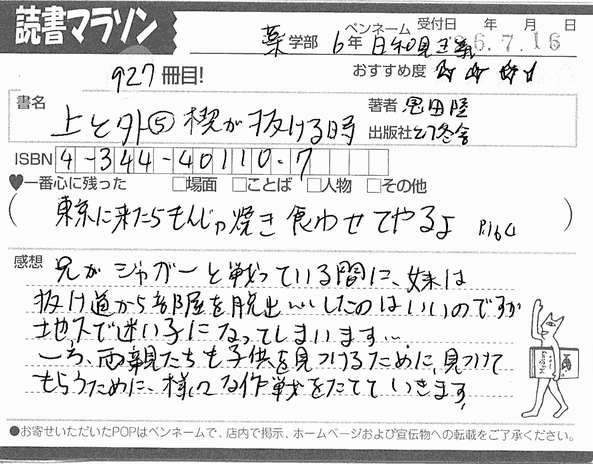 読書マラソン
ペンネーム 受付日 年 月 日
薬学部 6年 日和見 6.7.16
927冊目!
おすすめ度 ☆ ☆ ☆☆
書名
上と外⑤ 楔が抜ける時
著者 恩田陸
出版社 幻冬舎
ISBN 4-344-40110-7
♥一番心に残った □場面 □ことば □人物 □その他
(東京に来たらもんじゃ焼き食わせてやるよ P164)
感想
兄がジャガーと戦っている間に、妹は
抜け道から部屋を脱出…したのはいいのですが
地下で迷い子になってしまいます…。
一方、両親たちも子供を見つけるために、見つけて
もらうために、様々な作戦をたてていきます
●お寄せいただいたPOPはペンネームで、店内で掲示、ホームページおよび宣伝物への転載をご了承ください。